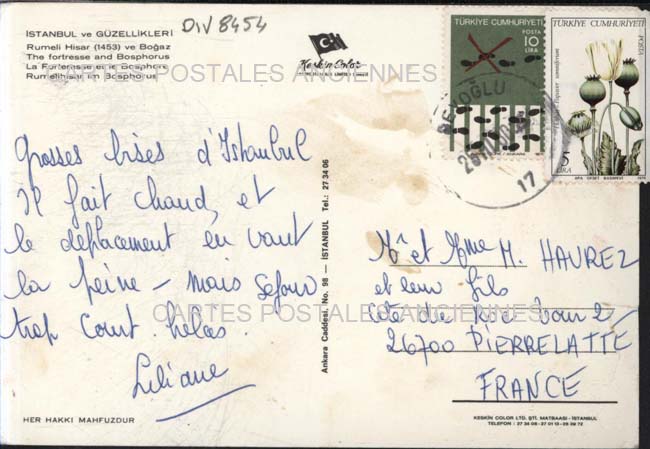 DIV 8454
İSTANBUL ve GÜZELLİKLERİ
Rumeli Hisar (1453) ve Boğaz
The fortresse and Bosphorus
La Forteresse et le Bosphore
Rumelihisar im Bosphorus
Keskin Color
CARTES POSTALES ANCIENNES
TÜRKİYE CUMHURİYETİ
POSTA
10
LİRA
TÜRKİYE CUMHURİYETİ
POSTA
Papaver somniferum
5
LİRA
BEYOĞLU
17
Grosses bises d'Istanbul
Il fait chaud, et
le déplacement en vaut
la peine - mais séjour
trop court. hélas.
Liliane
Ankara Caddesi, No. 98 — İSTANBUL Tel.: 27 34 06
Mr et Mme M. HAUREZ
et leur fils
CARTES POSTALES ANCIENNES
26700 PIERRELATTE
FRANCE
HER HAKKI MAHFUZDUR
KESKİN COLOR LTD. ŞTİ. MATBAASI - İSTANBUL
TELEFON : 27 34 06 - 27 01 13 - 26 39 72